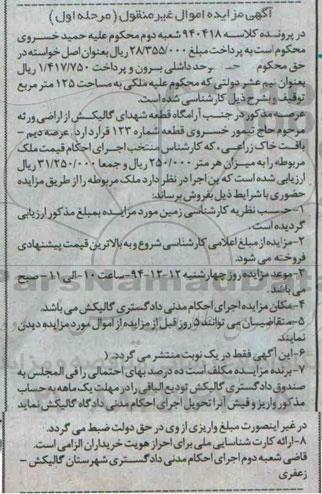 آگهی مزایده اموال غیر منقول (مرحله اول)
در پرونده کلاسه ۹۴۰۴۱۸ شعبه دوم محکوم علیه حمید خسروی
محکوم است به پرداخت مبلغ ۲۸/۳۵۵/۰۰۰ ریال بعنوان اصل خواسته در
حق محکوم وحدداشلی برون و پرداخت ۱/۴۱۷/۷۵۰ ریال
بعنوان نیم عشر دولتی که محکوم علیه ملکی به مساحت ۱۲۵ متر مربع
توقیف و بشرح ذیل کارشناسی شده است.
عرصه مذکور در جنب آرامگاه قطعه شهدای گالیکش از اراضی ورثه
مرحوم حاج تیمور خسروی قطعه شماره ۱۲۳ قرار دارد. عرصه دیم -
بافت خاک زراعی، که کارشناس منتخب اجرای احکام قیمت ملک
مربوطه را به میزان هر متر ۲۵۰/۰۰۰ ریال و جمعا ۳۱/۲۵۰/۰۰۰ ریال
ارزیابی شده است که این اجرا در نظر دارد ملک مربوطه را از طریق مزایده
حضوری با شرایط ذیل بفروش برساند:
۱- حسب نظریه کارشناسی زمین مورد مزایده بمبلغ مذکور ارزیابی
گردیده است.
۲- مزایده از مبلغ اعلامی کارشناسی شروع و به بالاترین قیمت پیشنهادی
فروخته می شود.
۳- موعد مزایده روز چهارشنبه ۱۲-۱۲-۹۴ - ساعت ۱۰ - الی ۱۱ - صبح
می باشد.
۴- مکان مزایده اجرای احکام مدنی دادگستری گالیکش می باشد.
۵- متقاضیان می توانند ۵ روز قبل از مزایده از اموال مورد مزایده دیدن
نمایند.
۶- این آگهی فقط در یک نوبت منتشر می گردد. (
۷- برنده مزایده مکلف است ده درصد بهای احتمالی را فی المجلس به
صندوق دادگستری گالیکش تودیع الباقی را در مهلت یک ماهه به حساب
مذکور واریز و فیش آنرا تحویل اجرای احکام مدنی دادگاه گالیکش نماید
در غیر اینصورت مبلغ واریزی از وی در حق دولت ضبط می گردد.
۸- ارائه کارت شناسایی ملی برای احراز هویت خریداران الزامی است.
قاضی شعبه دوم اجرای احکام مدنی دادگستری شهرستان گالیکش -
زعفری